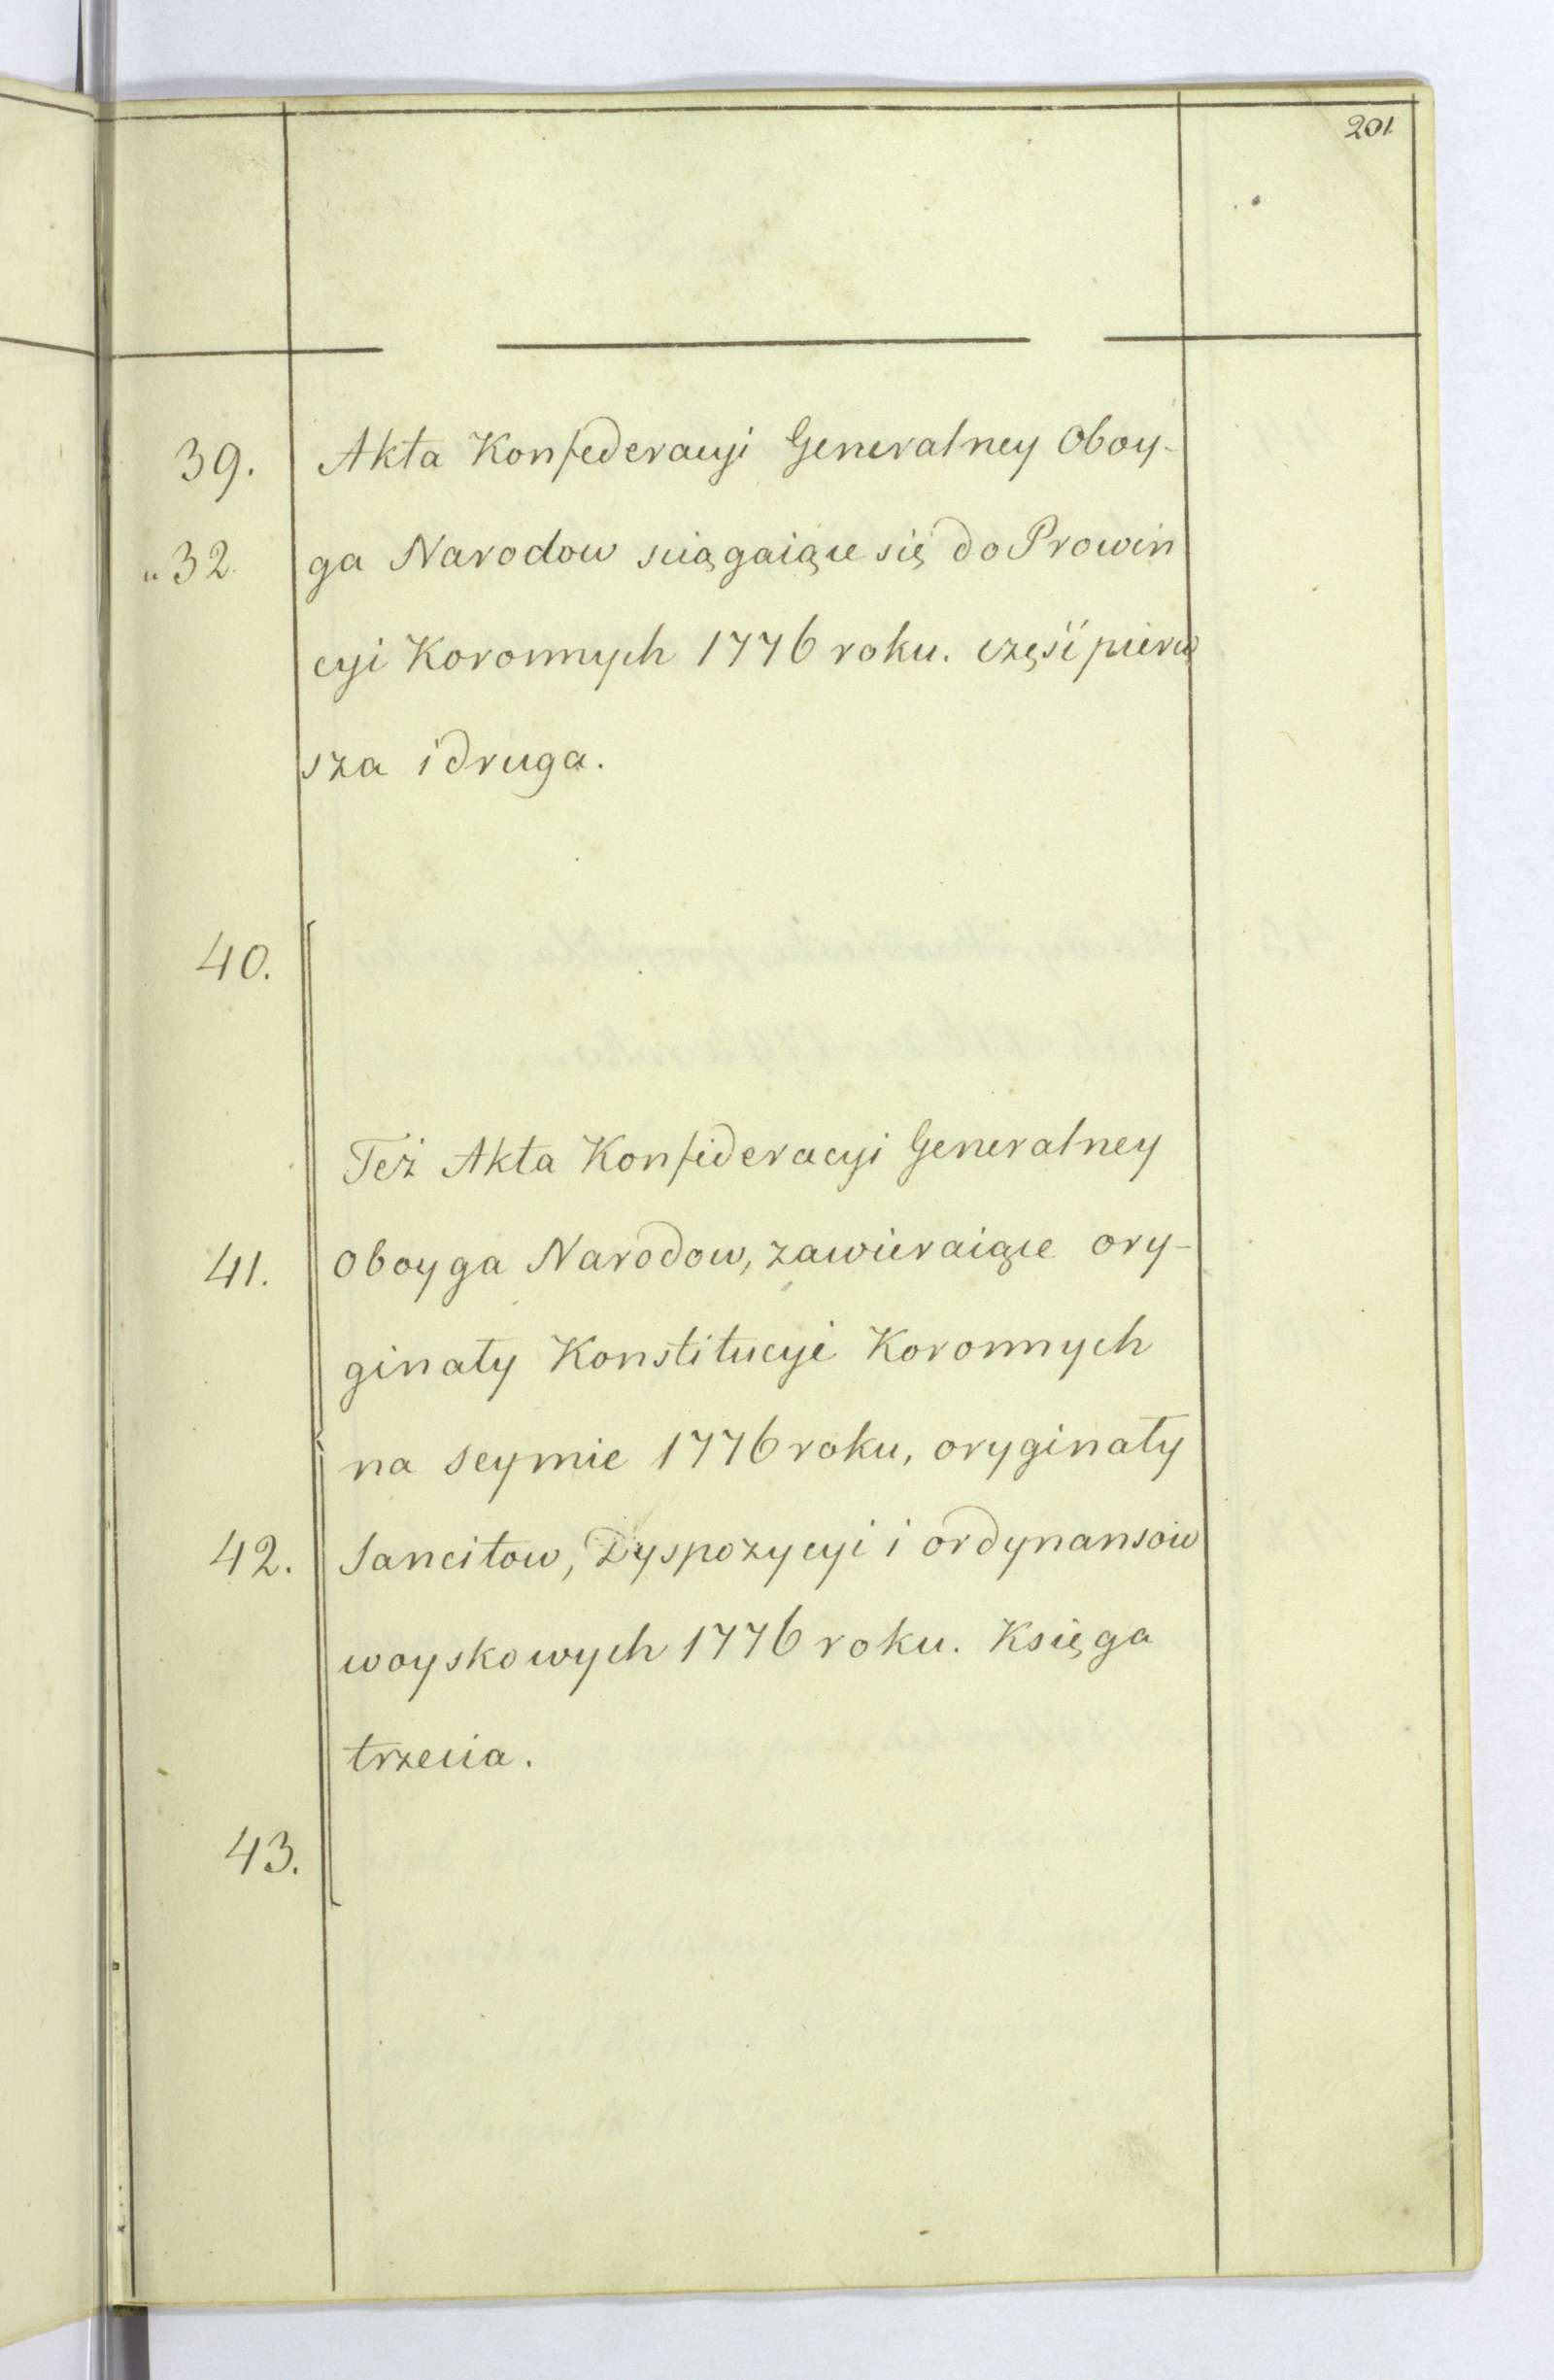 201.
39. Akta Konfederacyi Generalney Oboy-
"32. ga Narodow sciągaiące się do Prowin
cyi Koronnych 1776 roku. część pierw
sza i druga.
40.
Też Akta Konfederacyi Generalney
41. Oboyga Narodow, zawieraiące ory-
ginały Konstitucyi Koronnych
na seymie 1776 roku, oryginały
42. Sancitow, Dyspozycyi i ordynansow
woyskowych 1776 roku. Księga
trzecia.
43.